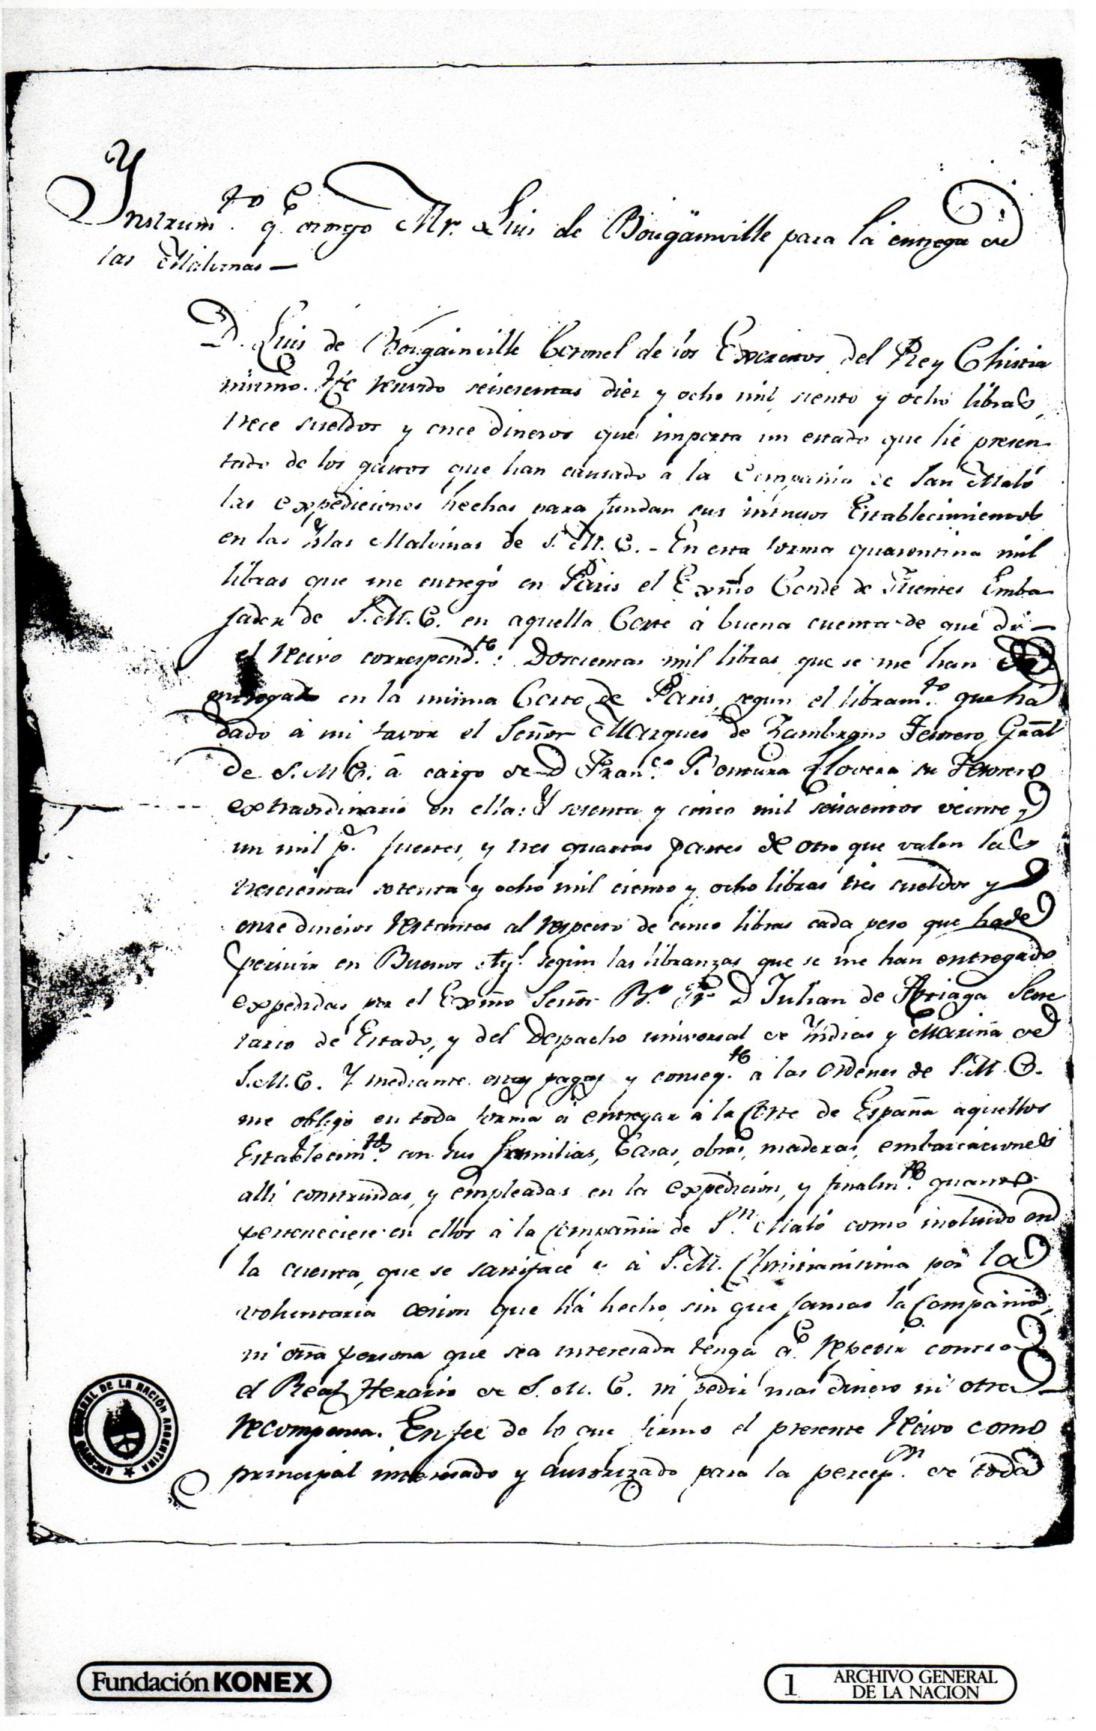 Instrum.to q.e otorgo Mr. Luis de Bougainville para la entrega de
las Malvinas —
D. Luis de Bougainville Coronel de los Exercitos del Rey Christia
nisimo. Hé recivido seiscientas diez y ocho mil, ciento y ocho libras,
trece sueldos y once dineros que importa un estado que hé presen-
tado de los gastos que han causado a la Compañia de San Maló
las expediciones hechas para fundar sus intrusos Establecimientos
en las Yslas Malvinas de S. M. C. - En esta forma quarentina mil
libras que me entregó en Paris el Exmo Conde de Fuentes Emba
jador de S. M. C. en aquella Corte á buena cuenta de que dí
el recivo correspond.te: Doscientas mil libras que se me han de
entregar en la misma Corte de Paris, segun el libram.to que ha
dado á mi favor el Señor Marques de Zambrano Tesorero Grãl
de S. M. C. á cargo de D Fran.co Ventura Llovera su Tesorero
extraordinario en ella: Y setenta y cinco mil seiscientos veinte y
un mil p.s fuertes, y tres quartas partes de otro que valen las
trescientas setenta y ocho mil ciento y ocho libras tres sueldos y
once dineros restantes al respecto de cinco libras cada peso que hade
percivir en Buenos Ay.s segun las libranzas que se me han entregado
expedidas por el Exmo Señor B.o Fr. D Julian de Arriaga Secre
tario de Estado, y del Despacho universal de Yndias y Marina de
S. M. C. Y mediante estos pagos y conseq.te a las Ordenes de S. M. C.
me obligo en toda forma á entregar á la Corte de España aquellos
Establecim.tos con sus familias, Casas, obras, maderas, embarcaciones
allí construidas, y empleadas en la expedicion, y finalm.te quanto
perteneciere en ellos á la Compañia de S.n Maló como incluido en
la cuenta, que se satisface á S. M. Christianisima por la
voluntaria cesion que há hecho, sin que jamas la Compañia,
ni otra persona que sea interesada tenga q.e repetir contra
el Real Herario de S. M. C. ni pedir mas dinero ni otra
recompensa. En fee de lo que firmo el presente recivo como
principal interesado y autorizado para la percep.on de toda
ARCHIVO GENERAL DE LA NACIÓN ARGENTINA
Fundación KONEX
1 ARCHIVO GENERAL
DE LA NACION